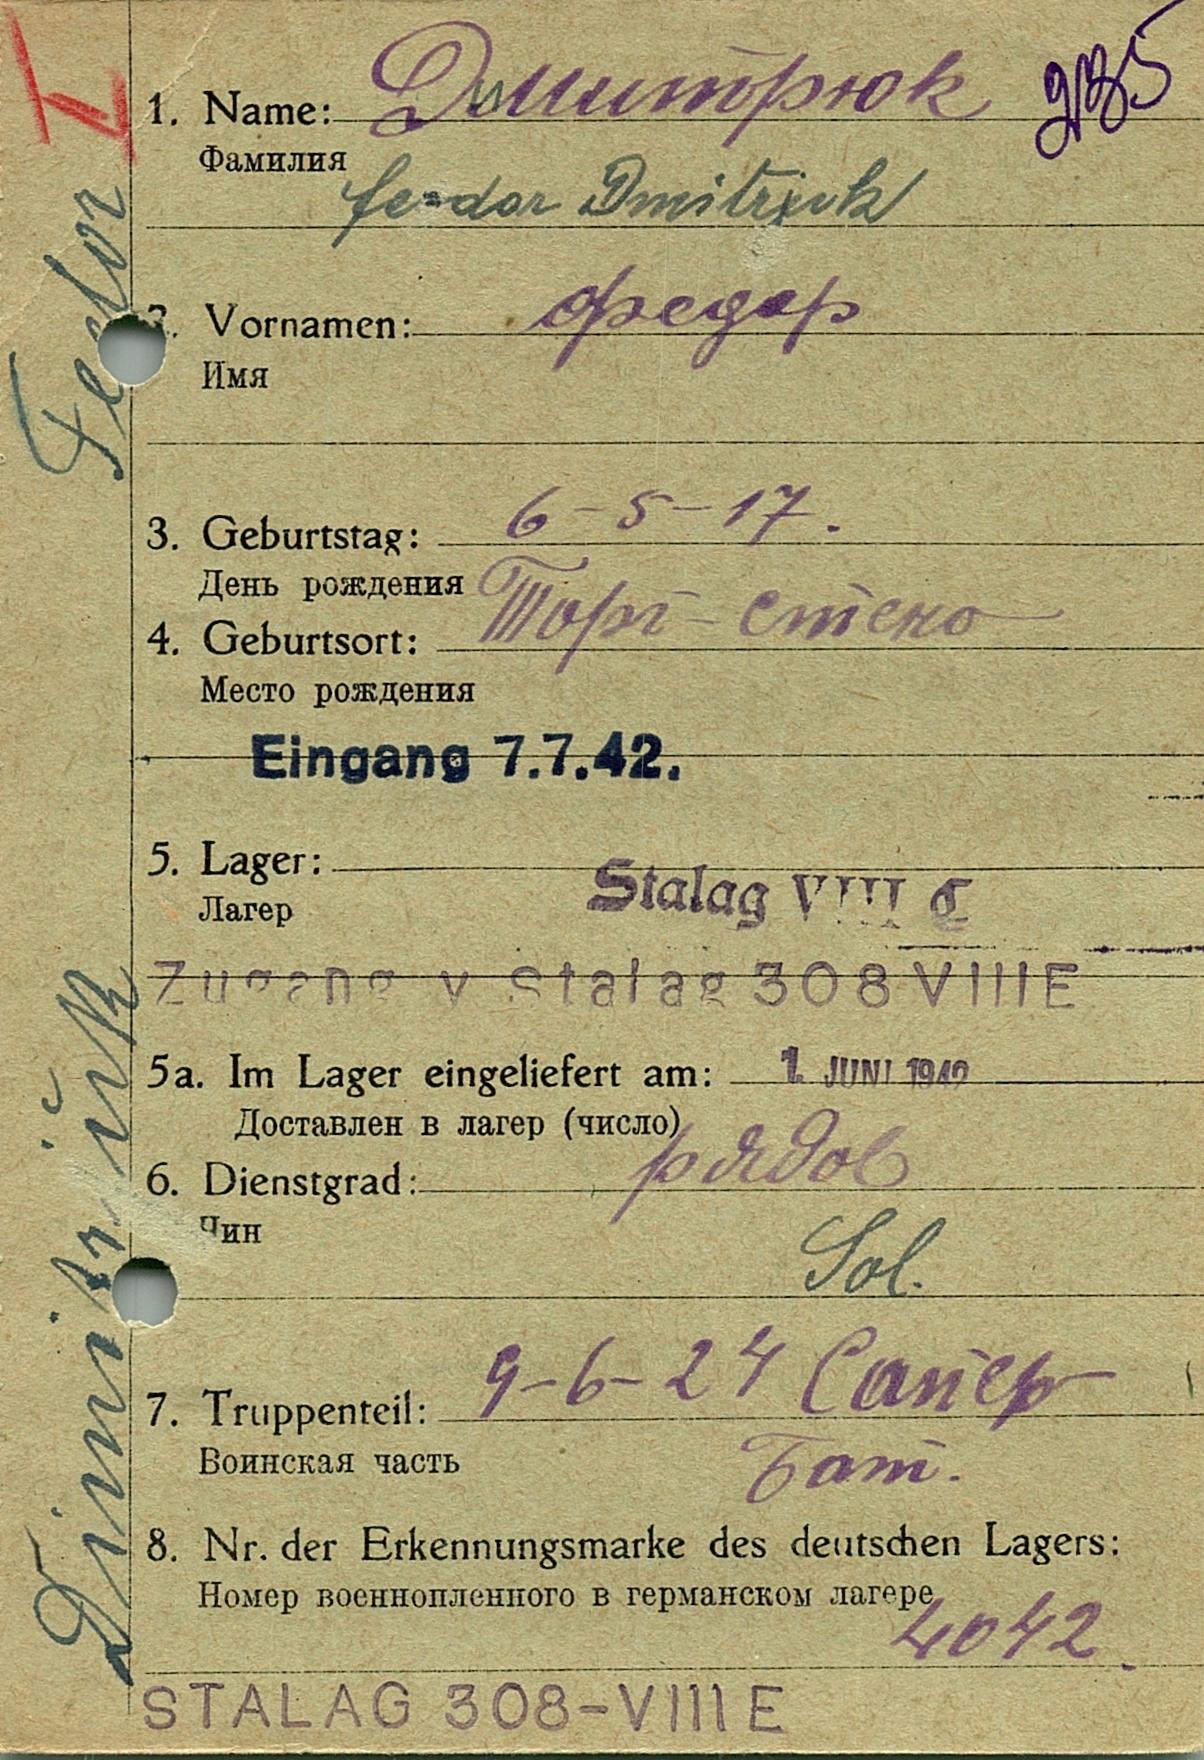 1. Name: Дмитрюк
Фамилия
feodor Dmitrjuk
2. Vornamen: федор
Имя
3. Geburtstag: 6-5-17.
День рождения
4. Geburtsort: Торг-стено
Место рождения
Eingang 7.7.42.
5. Lager: Stalag VIII C
Лагер
Zugang v Stalag 308 VIIIE
5a. Im Lager eingeliefert am: 1. JUNI 1942
Доставлен в лагер (число)
6. Dienstgrad: рядов
Чин
Sol.
7. Truppenteil: 9-6-24 Сапер
Воинская часть Бат.
8. Nr. der Erkennungsmarke des deutschen Lagers:
Номер военнопленного в германском лагере
4042.
STALAG 308-VIII E
Dimitrŭk Fedor